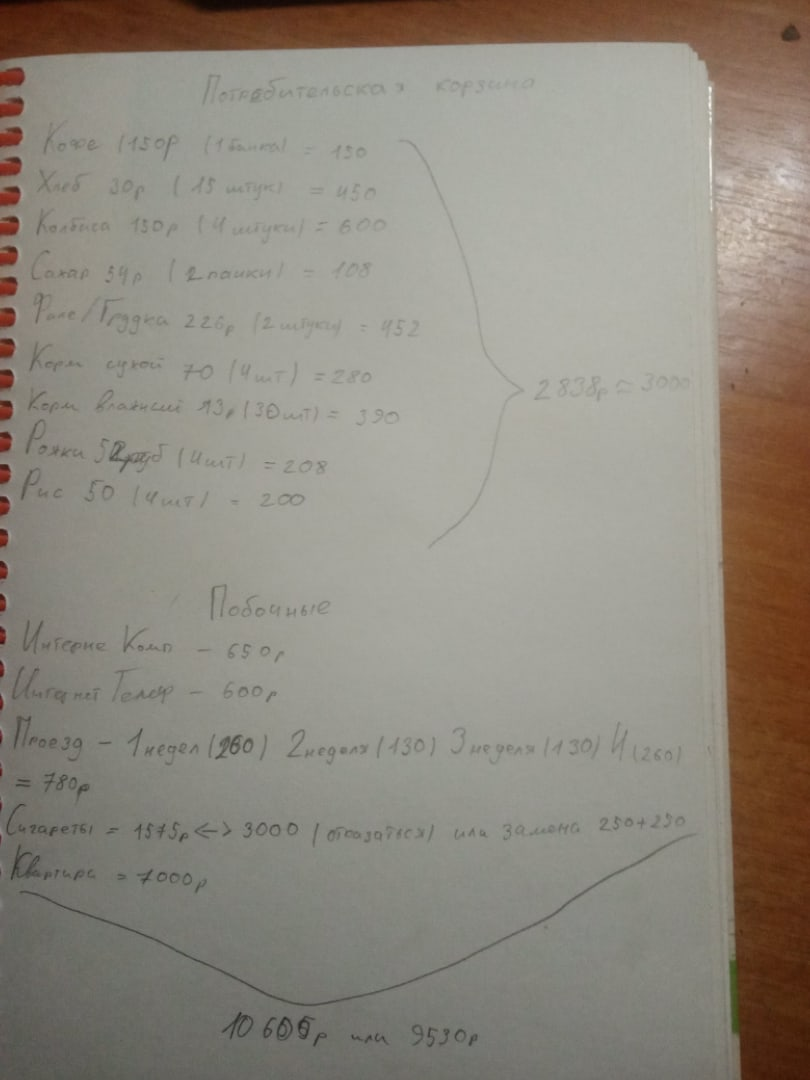 Потребительская корзина
Кофе 150р (1 банка) = 150
Хлеб 30р (15 штук) = 450
Колбаса 150р (4 штуки) = 600
Сахар 54р (2 пачки) = 108
Филе/Грудка 226р (2 штуки) = 452
Корм сухой 70 (4шт) = 280
Корм влажный 13р (30шт) = 390
2838р ≈ 3000
Рожки 52руб (4шт) = 208
Рис 50 (4шт) = 200
Побочные
Интерне Комп - 650р
Интернет Телеф - 600р
Проезд - 1 недел (260) 2 неделя (130) 3 неделя (130) 4 (260)
= 780р
Сигареты = 1575р <-> 3000 (отказаться) или замена 250+250
Квартира = 7000р
10605р или 9530р